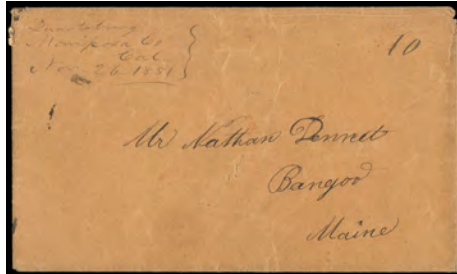 Quartzburg
Mariposa Co
Cal
Nov. 26 1851
10
Mr Nathan Dennet
Bangor
Maine